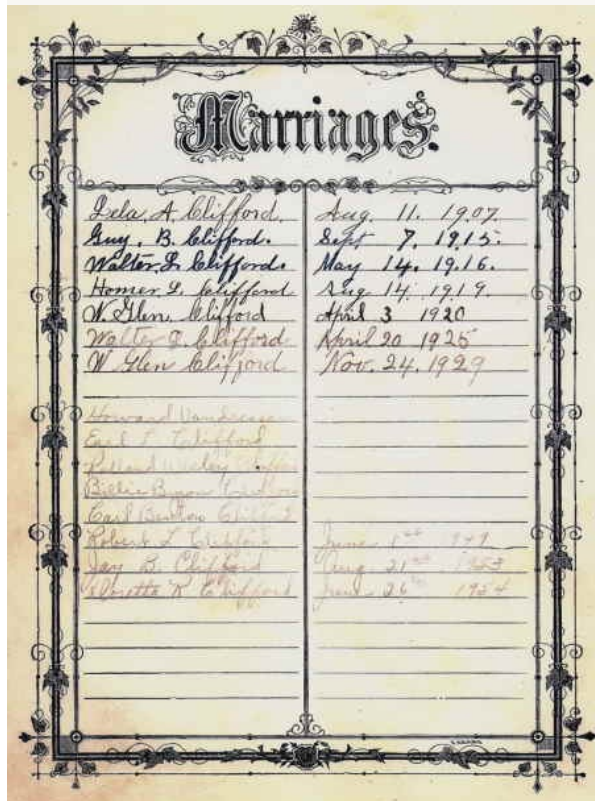 Marriages.
Lela. A Clifford. Aug. 11. 1907.
Guy. B. Clifford. Sept 7. 1915.
Walter. L. Clifford. May 14. 1916.
Homer. L. Clifford Aug 14. 1919.
W. Glen. Clifford April 3 1920
Walter Clifford April 20 1925
W Glen Clifford Nov. 24. 1929
Howard
Earl L Clifford
Billie Byron Clifford
Carl Benton Clifford
Robert L Clifford June 1st 1949
Jay B. Clifford Aug 21st 1953
Loretta K Clifford June 26 1954